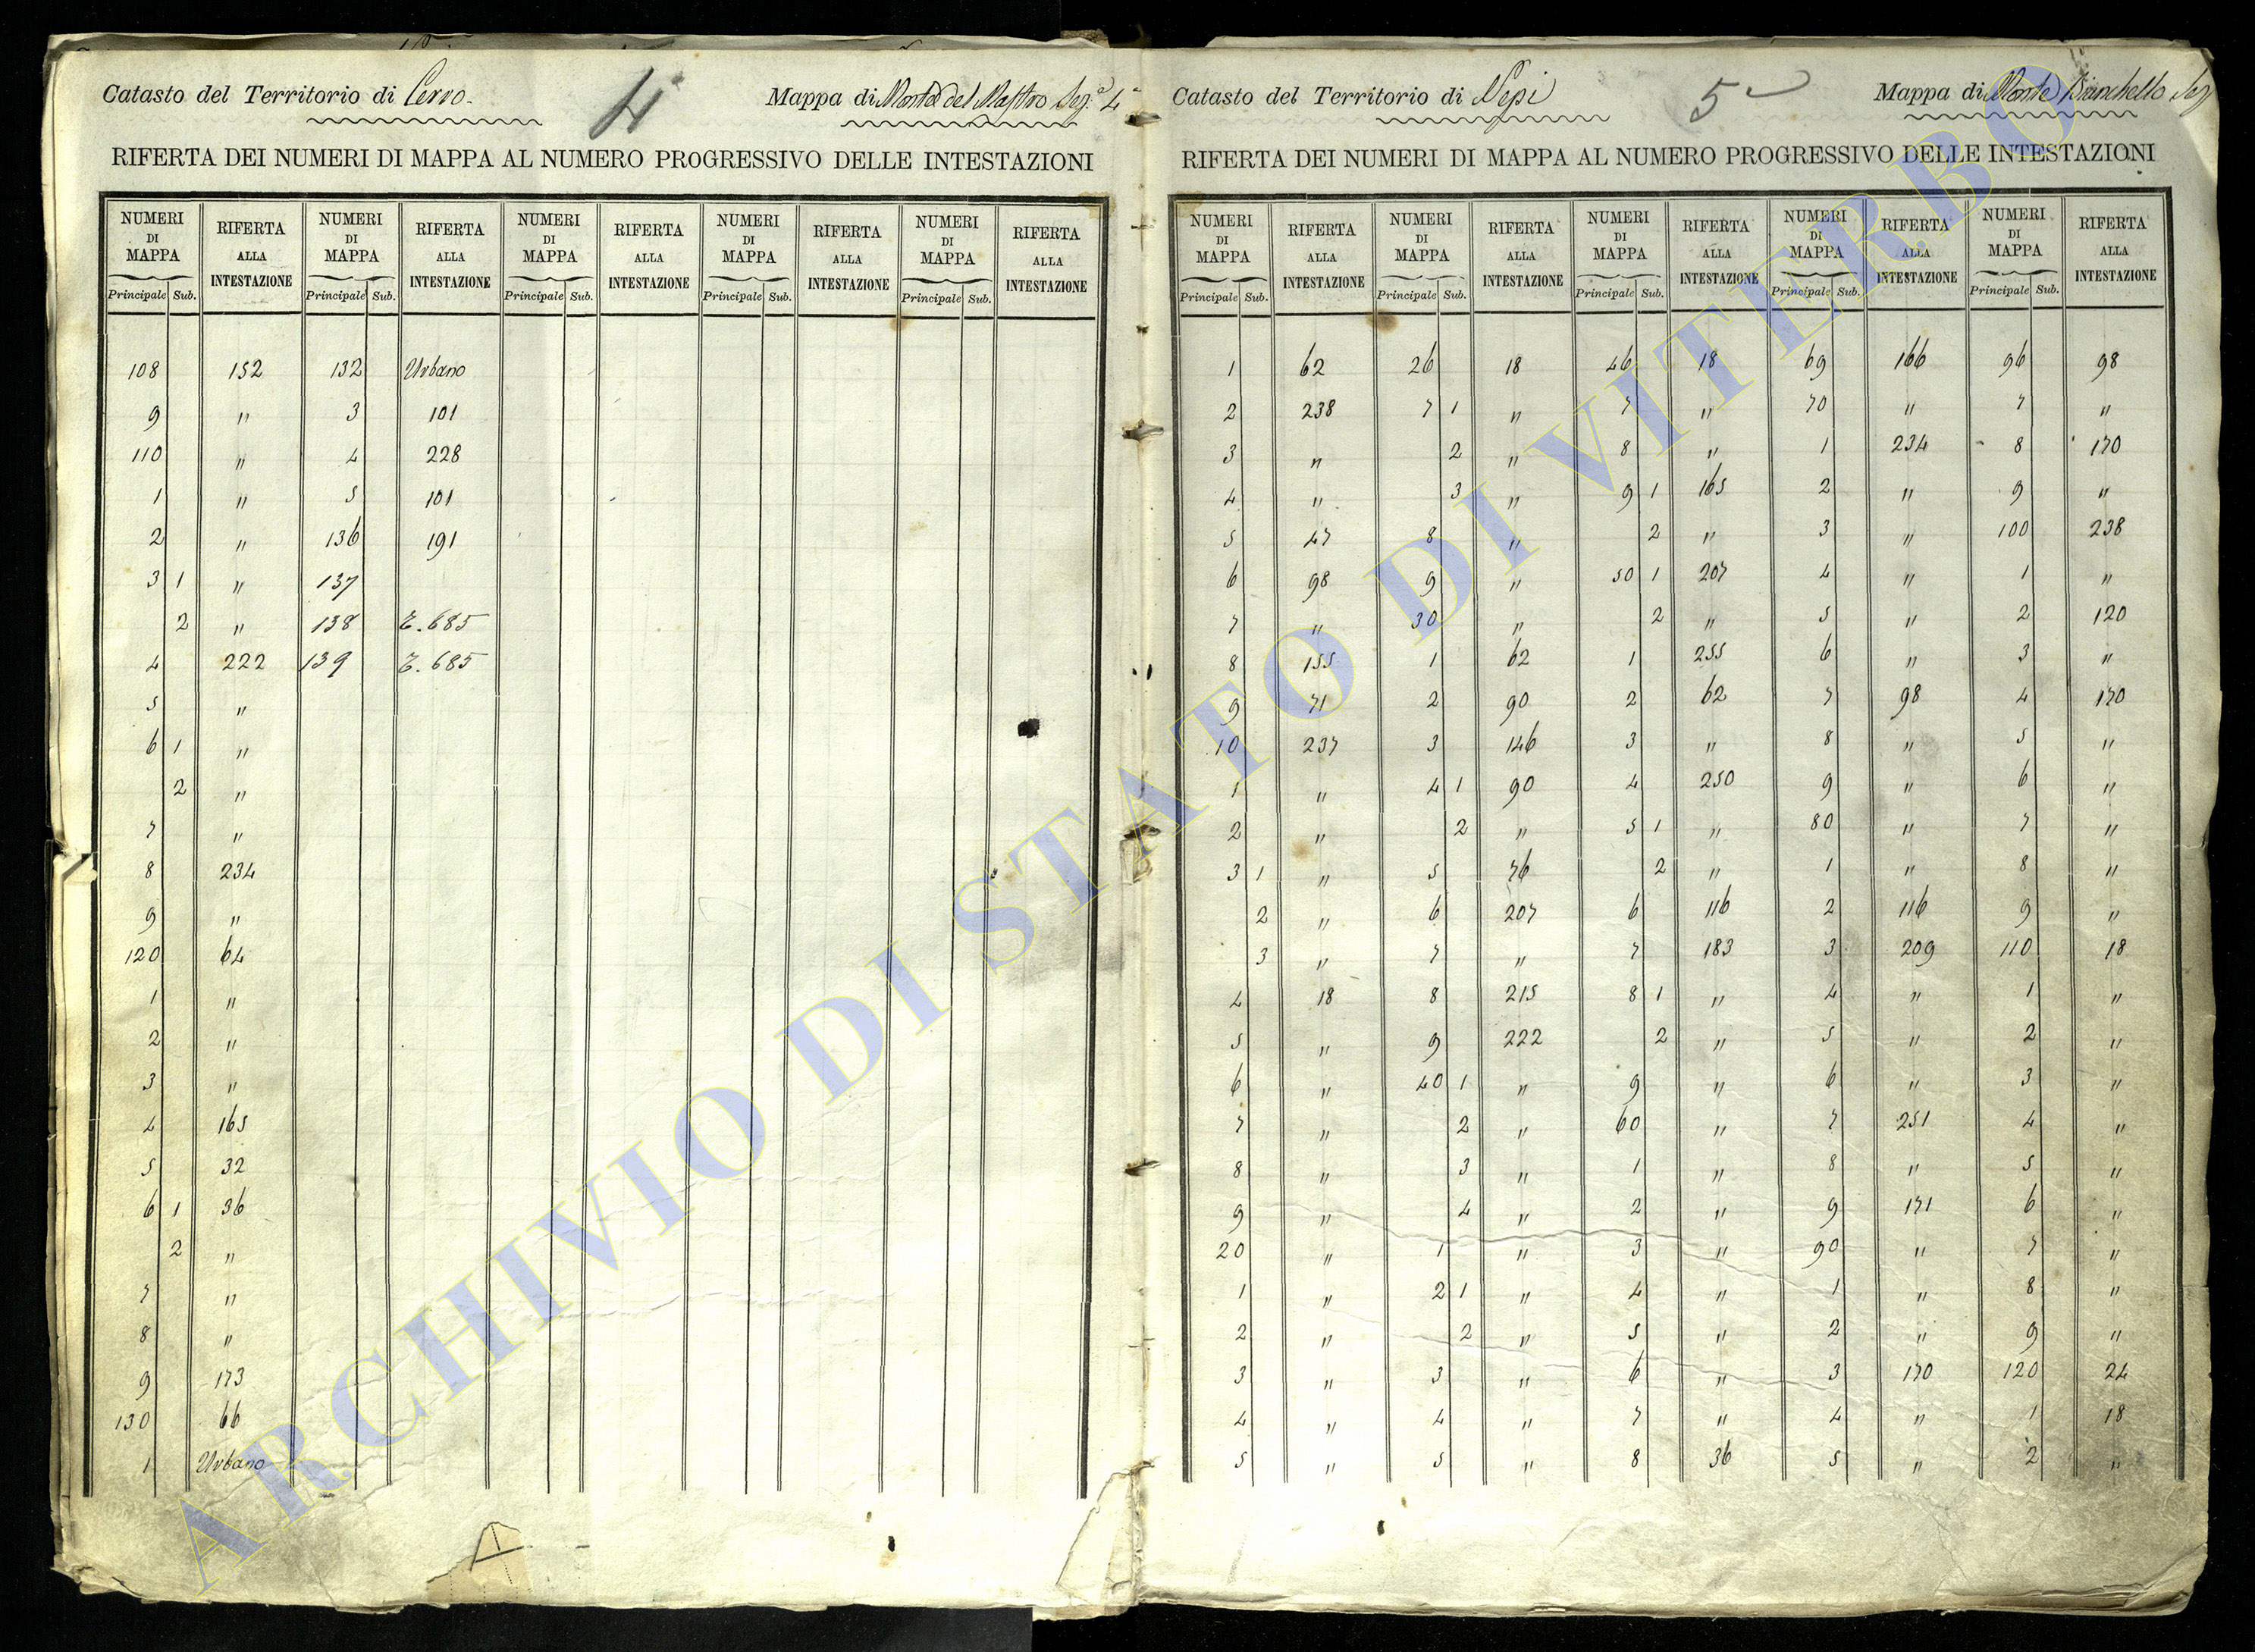 Catasto del Territorio di
4
Mappa di Monte del Mastro Sez.e 4
RIFERTA DEI NUMERI DI MAPPA AL NUMERO PROGRESSIVO DELLE INTESTAZIONI
NUMERI DI MAPPA RIFERTA ALLA INTESTAZIONE NUMERI DI MAPPA RIFERTA ALLA INTESTAZIONE NUMERI DI MAPPA RIFERTA ALLA INTESTAZIONE NUMERI DI MAPPA RIFERTA ALLA INTESTAZIONE NUMERI DI MAPPA RIFERTA ALLA INTESTAZIONE
Principale Sub. Principale Sub. Principale Sub. Principale Sub. Principale Sub.
108 152 132 Urbano
9 " 3 101
110 " 4 228
1 " 5 101
2 " 136 191
3 1 " 137
2 " 138 T. 685
4 222 139 T. 685
5 "
6 1 "
2 "
7 "
8 234
9 "
120 64
1 "
2 "
3 "
4 165
5 32
6 1 36
2 "
7 "
8 "
9 173
130 66
1 Urbano
Catasto del Territorio di Nepi
5
Mappa di Monte Bianchello Sez
RIFERTA DEI NUMERI DI MAPPA AL NUMERO PROGRESSIVO DELLE INTESTAZIONI
NUMERI DI MAPPA RIFERTA ALLA INTESTAZIONE NUMERI DI MAPPA RIFERTA ALLA INTESTAZIONE NUMERI DI MAPPA RIFERTA ALLA INTESTAZIONE NUMERI DI MAPPA RIFERTA ALLA INTESTAZIONE NUMERI DI MAPPA RIFERTA ALLA INTESTAZIONE
Principale Sub. Principale Sub. Principale Sub. Principale Sub. Principale Sub.
1 62 26 18 46 18 69 166 96 98
2 238 7 1 " 7 " 70 " 7 "
3 " 2 " 8 " 1 234 8 170
4 " 3 " 9 1 165 2 " 9 "
5 47 8 " 2 " 3 " 100 238
6 98 9 " 50 1 207 4 " 1 "
7 " 30 " 2 " 5 " 2 120
8 155 1 62 1 255 6 " 3 "
9 71 2 90 2 62 7 98 4 170
10 237 3 146 3 " 8 " 5 "
1 " 4 1 90 4 250 9 " 6 "
2 " 2 " 5 1 " 80 " 7 "
3 1 " 5 76 2 " 1 " 8 "
2 " 6 207 6 116 2 116 9 "
3 " 7 " 7 183 3 209 110 18
4 18 8 215 8 1 " 4 " 1 "
5 " 9 222 2 " 5 " 2 "
6 " 40 1 " 9 " 6 " 3 "
7 " 2 " 60 " 7 251 4 "
8 " 3 " 1 " 8 " 5 "
9 " 4 " 2 " 9 171 6 "
20 " 1 " 3 " 90 " 7 "
1 " 2 1 " 4 " 1 " 8 "
2 " 2 " 5 " 2 " 9 "
3 " 3 " 6 " 3 170 120 24
4 " 4 " 7 " 4 " 1 18
5 " 5 " 8 36 5 " 2 "
ARCHIVIO DI STATO DI VITERBO